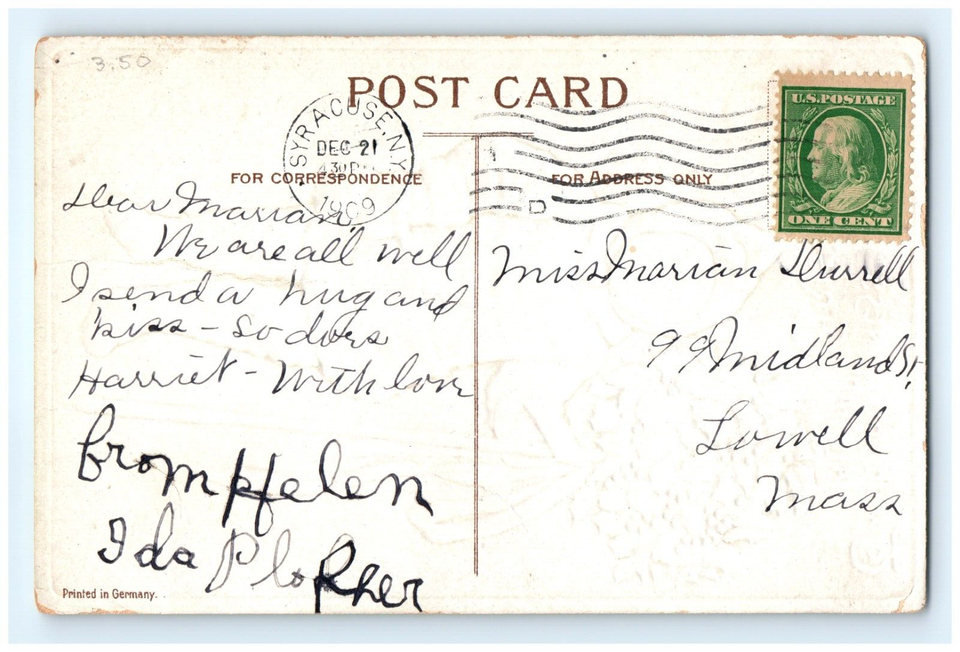 3.50
POST CARD
SYRACUSE, N.Y.
DEC 21
430P
1909
D
U.S. POSTAGE
ONE CENT
FOR CORRESPONDENCE
FOR ADDRESS ONLY
Dear Marian,
We are all well
I send a hug and
kiss - so does
Harriet - With love
from Helen
Ida
Miss Marian Durrell
99 Midland St,
Lowell
Mass
Printed in Germany.